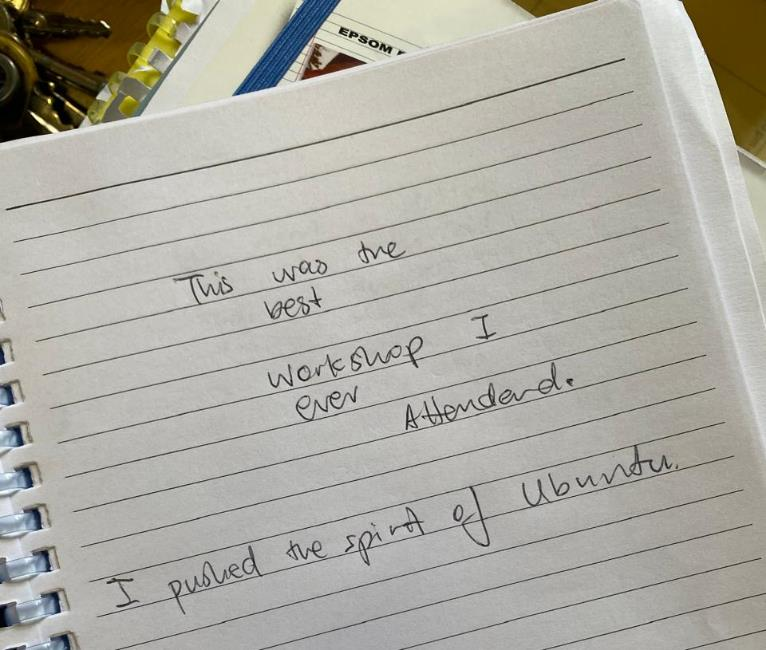 EPSOM
This was the
best
workshop I
ever
Attendend.
I pushed the spirit of Ubuntu.